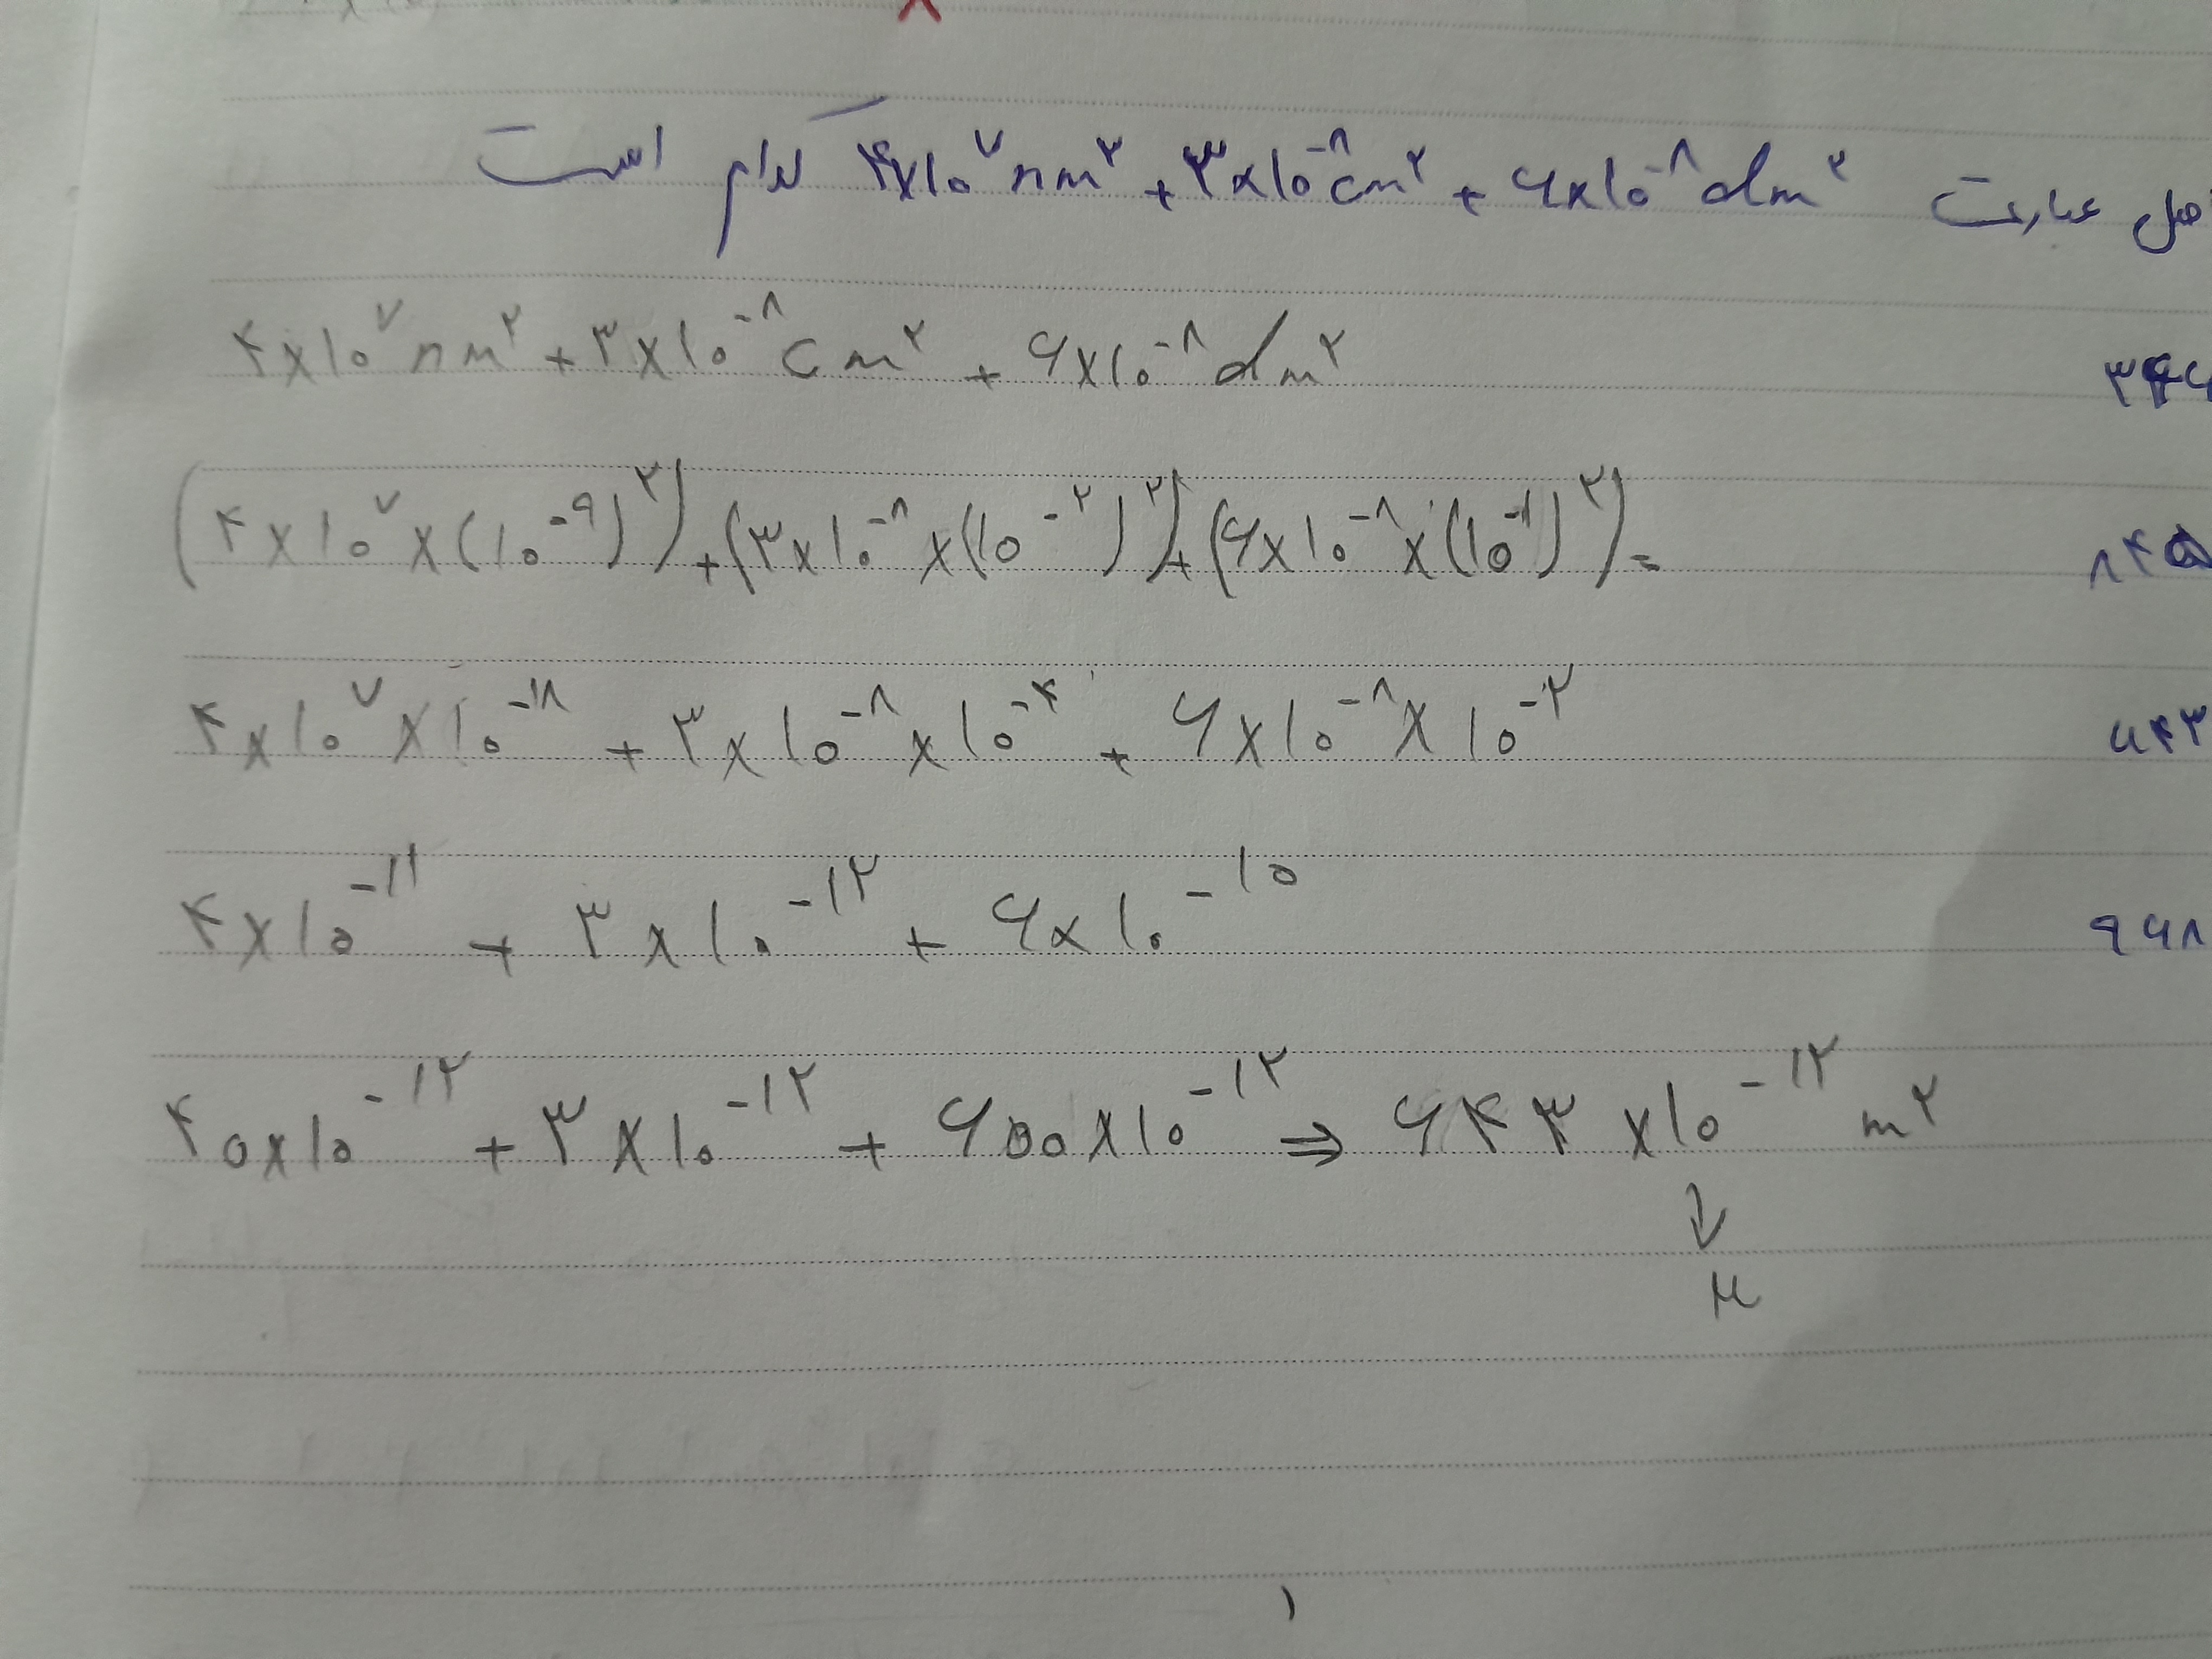 حاصل عبارت ۴×۱۰^۷ nm^۲ + ۳×۱۰^-۸ cm^۲ + ۶×۱۰^-۸ dm^۲ کدام است
۴×۱۰^۷ nm^۲ + ۳×۱۰^-۸ cm^۲ + ۶×۱۰^-۸ dm^۲
(۴×۱۰^۷×(۱۰^-۹)^۲)+(۳×۱۰^-۸×(۱۰^-۲)^۲)+(۶×۱۰^-۸×(۱۰^-۱)^۲)=
۴×۱۰^۷×۱۰^-۱۸ + ۳×۱۰^-۸×۱۰^-۴ + ۶×۱۰^-۸×۱۰^-۲
۶۴۳
۴×۱۰^-۱۱ + ۳×۱۰^-۱۲ + ۶×۱۰^-۱۰
۹۶۸
۴۰×۱۰^-۱۲ + ۳×۱۰^-۱۲ + ۶۰۰×۱۰^-۱۲ ⇒ ۶۴۳×۱۰^-۱۲ m^۲
↓
μ